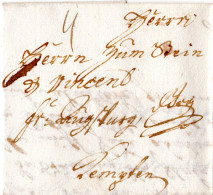 4
Herrn
Herrn zum Stein
Vincent
pr Augsburg
Kempten